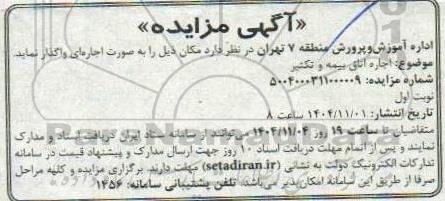 «آگهی مزایده»
اداره آموزش‌وپرورش منطقه ۷ تهران در نظر دارد مکان ذیل را به صورت اجاره‌ای واگذار نماید.
موضوع: اجاره اتاق بیمه و تکثیر
شماره مزایده: ۵۰۰۴۰۰۰۳۱۱۰۰۰۰۰۹
نوبت اول
تاریخ انتشار: ۱۴۰۴/۱۱/۰۱ ساعت ۸
متقاضیان تا ساعت ۱۹ روز ۱۴۰۴/۱۱/۰۴ می‌توانند از سامانه ستاد ایران دریافت اسناد و مدارک
نمایند و پس از اتمام مهلت دریافت اسناد ۱۰ روز جهت ارسال مدارک و پیشنهاد قیمت در سامانه
تدارکات الکترونیک دولت به نشانی (setadiran.ir) مهلت دارند. برگزاری مزایده و کلیه مراحل
صرفا از طریق این سامانه امکان‌پذیر می‌باشد. تلفن پشتیبانی سامانه: ۱۴۵۶